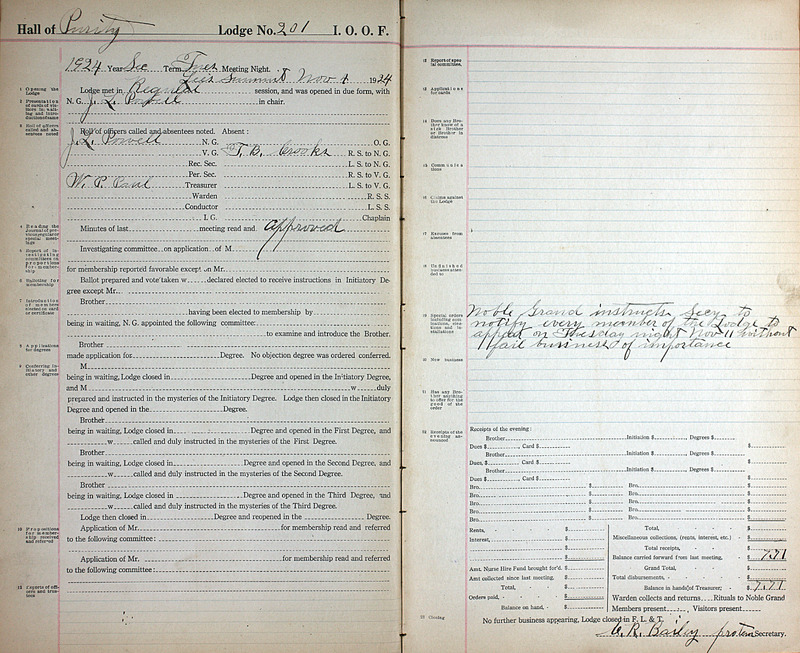 Hall of Purity Lodge No. 201 I. O. O. F.
1924 Year Dec Term Tues Meeting Night.
Lees Summit Nov 4 1924
1 Opening the Lodge
Lodge met in Regular session, and was opened in due form, with
N. G. J. L. Powell in chair.
Roll of officers called and absentees noted. Absent:
J. L. Powell N. G. O. G.
V. G. T. B. Crooks R. S. to N. G.
Rec. Sec. L. S. to N. G.
Per. Sec. R. S. to V. G.
W. P. Paul Treasurer L. S. to V. G.
Warden R. S. S.
Conductor L. S. S.
I. G. Chaplain
Minutes of last meeting read and approved
Investigating committee on application of M
for membership reported favorable except on Mr.
Ballot prepared and vote taken w declared elected to receive instructions in Initiatory De-
gree except Mr.
Brother
having been elected to membership by
being in waiting, N. G. appointed the following committee:
to examine and introduce the Brother.
Brother
made application for Degree. No objection degree was ordered conferred.
M
being in waiting, Lodge closed in Degree and opened in the Initiatory Degree,
and M w duly
prepared and instructed in the mysteries of the Initiatory Degree. Lodge then closed in the Initiatory
Degree and opened in the Degree.
Brother
being in waiting, Lodge closed in Degree and opened in the First Degree, and
w called and duly instructed in the mysteries of the First Degree.
Brother
being in waiting, Lodge closed in Degree and opened in the Second Degree, and
w called and duly instructed in the mysteries of the Second Degree.
Brother
being in waiting, Lodge closed in Degree and opened in the Third Degree, and
w called and duly instructed in the mysteries of the Third Degree.
Lodge then closed in Degree and reopened in the Degree.
Application of Mr. for membership read and referred
to the following committee:
Application of Mr. for membership read and referred
to the following committee:
12 Report of special committees.
13 Applications for cards
14 Does any Brother know of a sick Brother or Brother in distress
15 Communications
16 Claims against the Lodge
17 Excuses from absentees
18 Unfinished business
Noble Grand instructs Secy to
notify every member of the Lodge to
appear on Tuesday night Nov 11 without
fail business of importance
20 New business
21 Has any Brother anything to offer for the good of the order
Receipts of the evening:
Brother Initiation $ , Degrees $
Dues $ , Card $ $
Brother Initiation $ , Degrees $
Dues, $ , Card $ $
Brother Initiation $ , Degrees $
Dues $ , Card $ $
Bro. $ Bro. $
Bro. $ Bro. $
Bro. $ Bro. $
Bro. $ Bro. $
Bro. $ Bro. $
Rents, $ Total, $
Interest, $ Miscellaneous collections, (rents, interest, etc.) $
$ Total receipts, $
$ Balance carried forward from last meeting, $ 7.71
Amt. Nurse Hire Fund brought for'd. $ Grand Total, $
Amt collected since last meeting, $ Total disbursements, $
Total, $ Balance in hands of Treasurer, $ 7.71
Orders paid, $ Warden collects and returns Rituals to Noble Grand
Balance on hand, $ Members present Visitors present
No further business appearing, Lodge closed in F. L. & T.
C. R. Bailey protem Secretary.